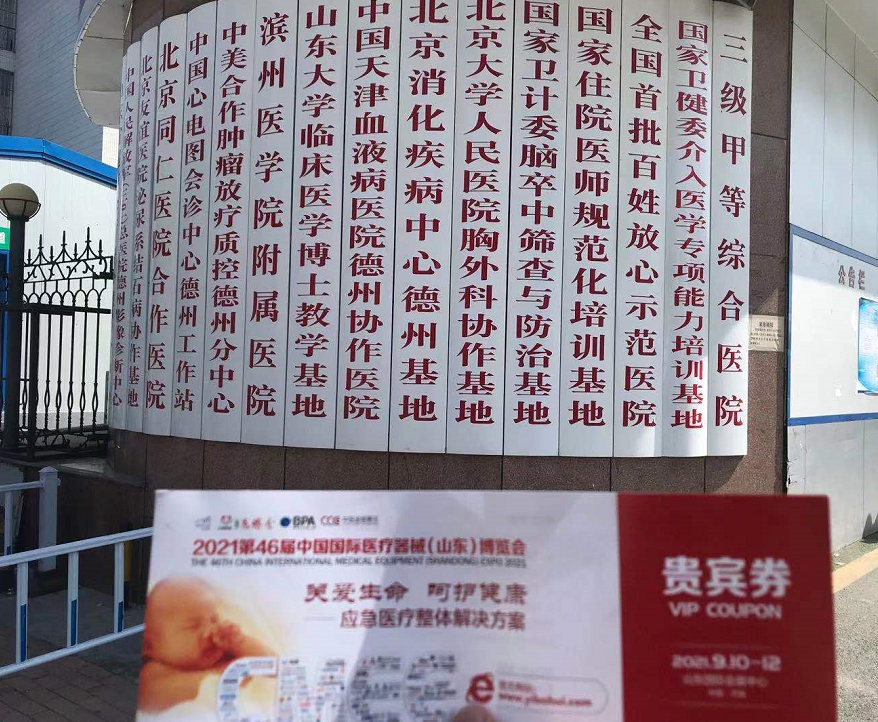 三级甲等综合医院
国家卫健委介入医学专项能力培训基地
全国首批百姓放心示范医院
国家住院医师规范化培训基地
国家卫计委脑卒中筛查与防治基地
北京大学人民医院胸外科协作基地
北京消化疾病中心德州基地
中国天津血液病医院德州协作医院
山东大学临床医学博士教学基地
滨州医学院附属医院
中美合作肿瘤放疗质控德州分中心
中国心电图会诊中心德州工作站
北京同仁医院合作医院
北京友谊医院泌尿系结石病协作基地
公告栏
BPA
2021第46届中国国际医疗器械(山东)博览会
THE 46TH CHINA INTERNATIONAL MEDICAL EQUIPMENT (SHANDONG) EXPO 2021
关爱生命 呵护健康
应急医疗整体解决方案
贵宾券
VIP COUPON
2021.9.10-12
山东国际会展中心